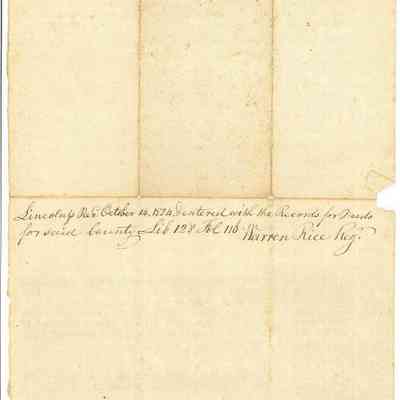 Lincoln ss Recd. October 14. 1824 & entered with the Records for Deeds
for said County Lib. 128 Fol 116 Warren Rice Regr.